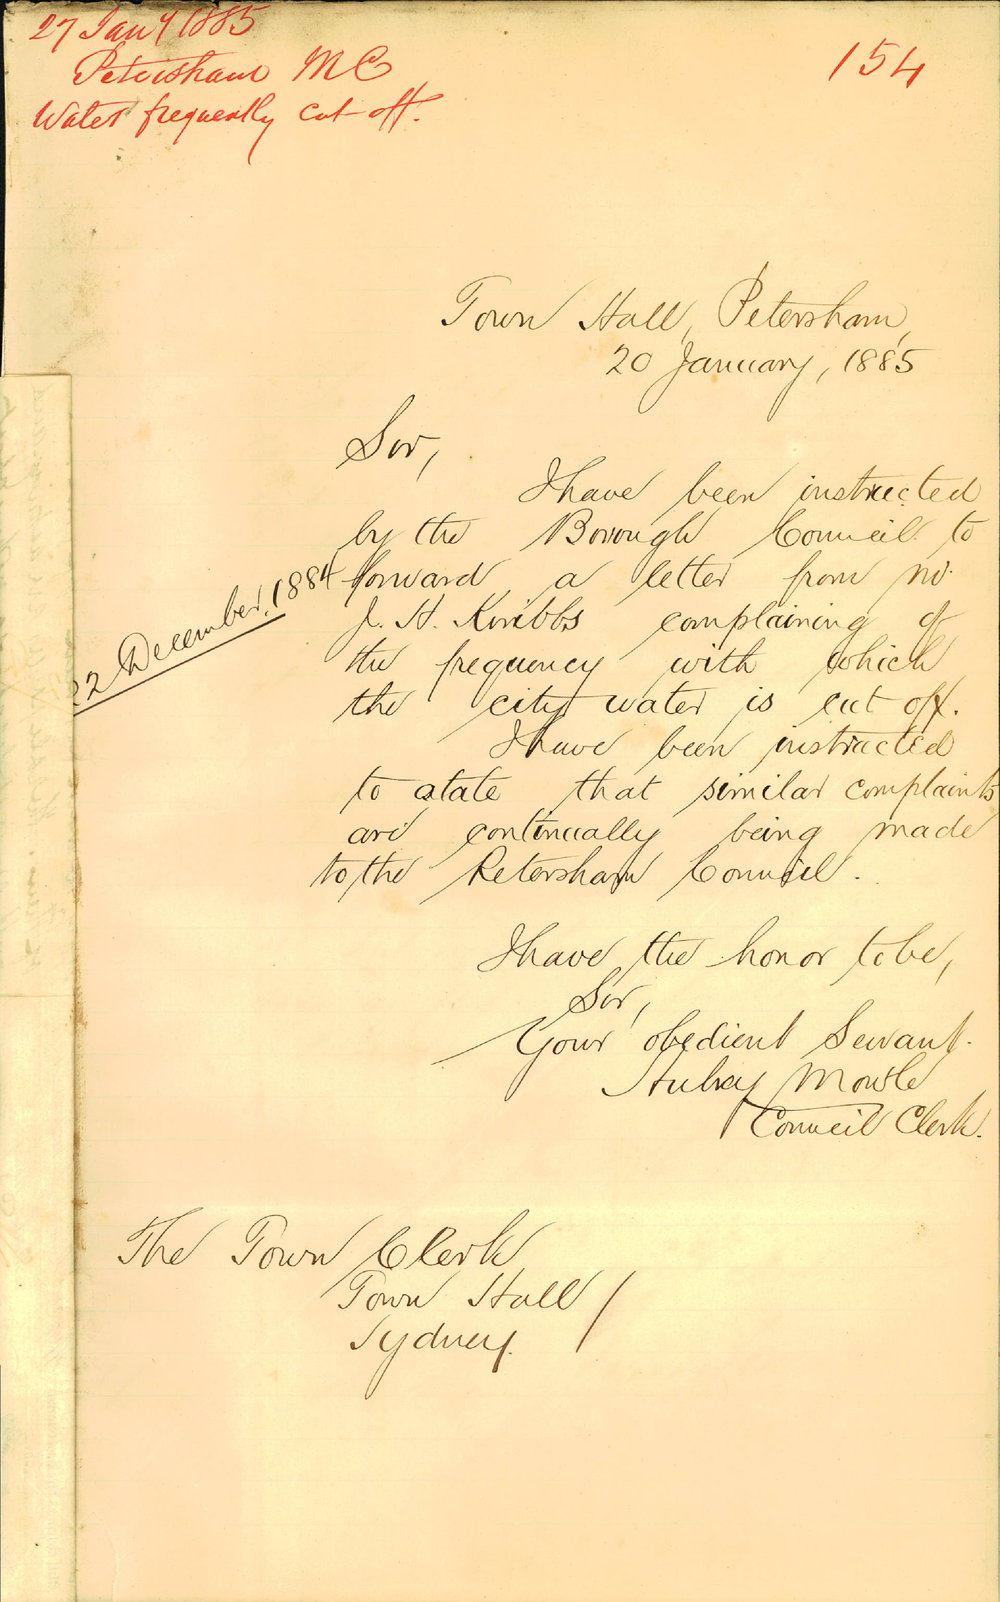 27 Jany 1885
Petersham M C
Water frequently cut off.
154
Town Hall, Petersham,
20 January, 1885
Sir,
I have been instructed
by the Borough Council to
forward a letter from Mr.
J. H. Kribbs complaining of
the frequency with which
the city water is cut off.
22 December, 1884
I have been instructed
to state that similar complaints
are continually being made
to the Petersham Council.
I have the honor to be,
Sir,
Your obedient Servant.
Aubrey Mowle
Council Clerk.
The Town Clerk
Town Hall
Sydney.